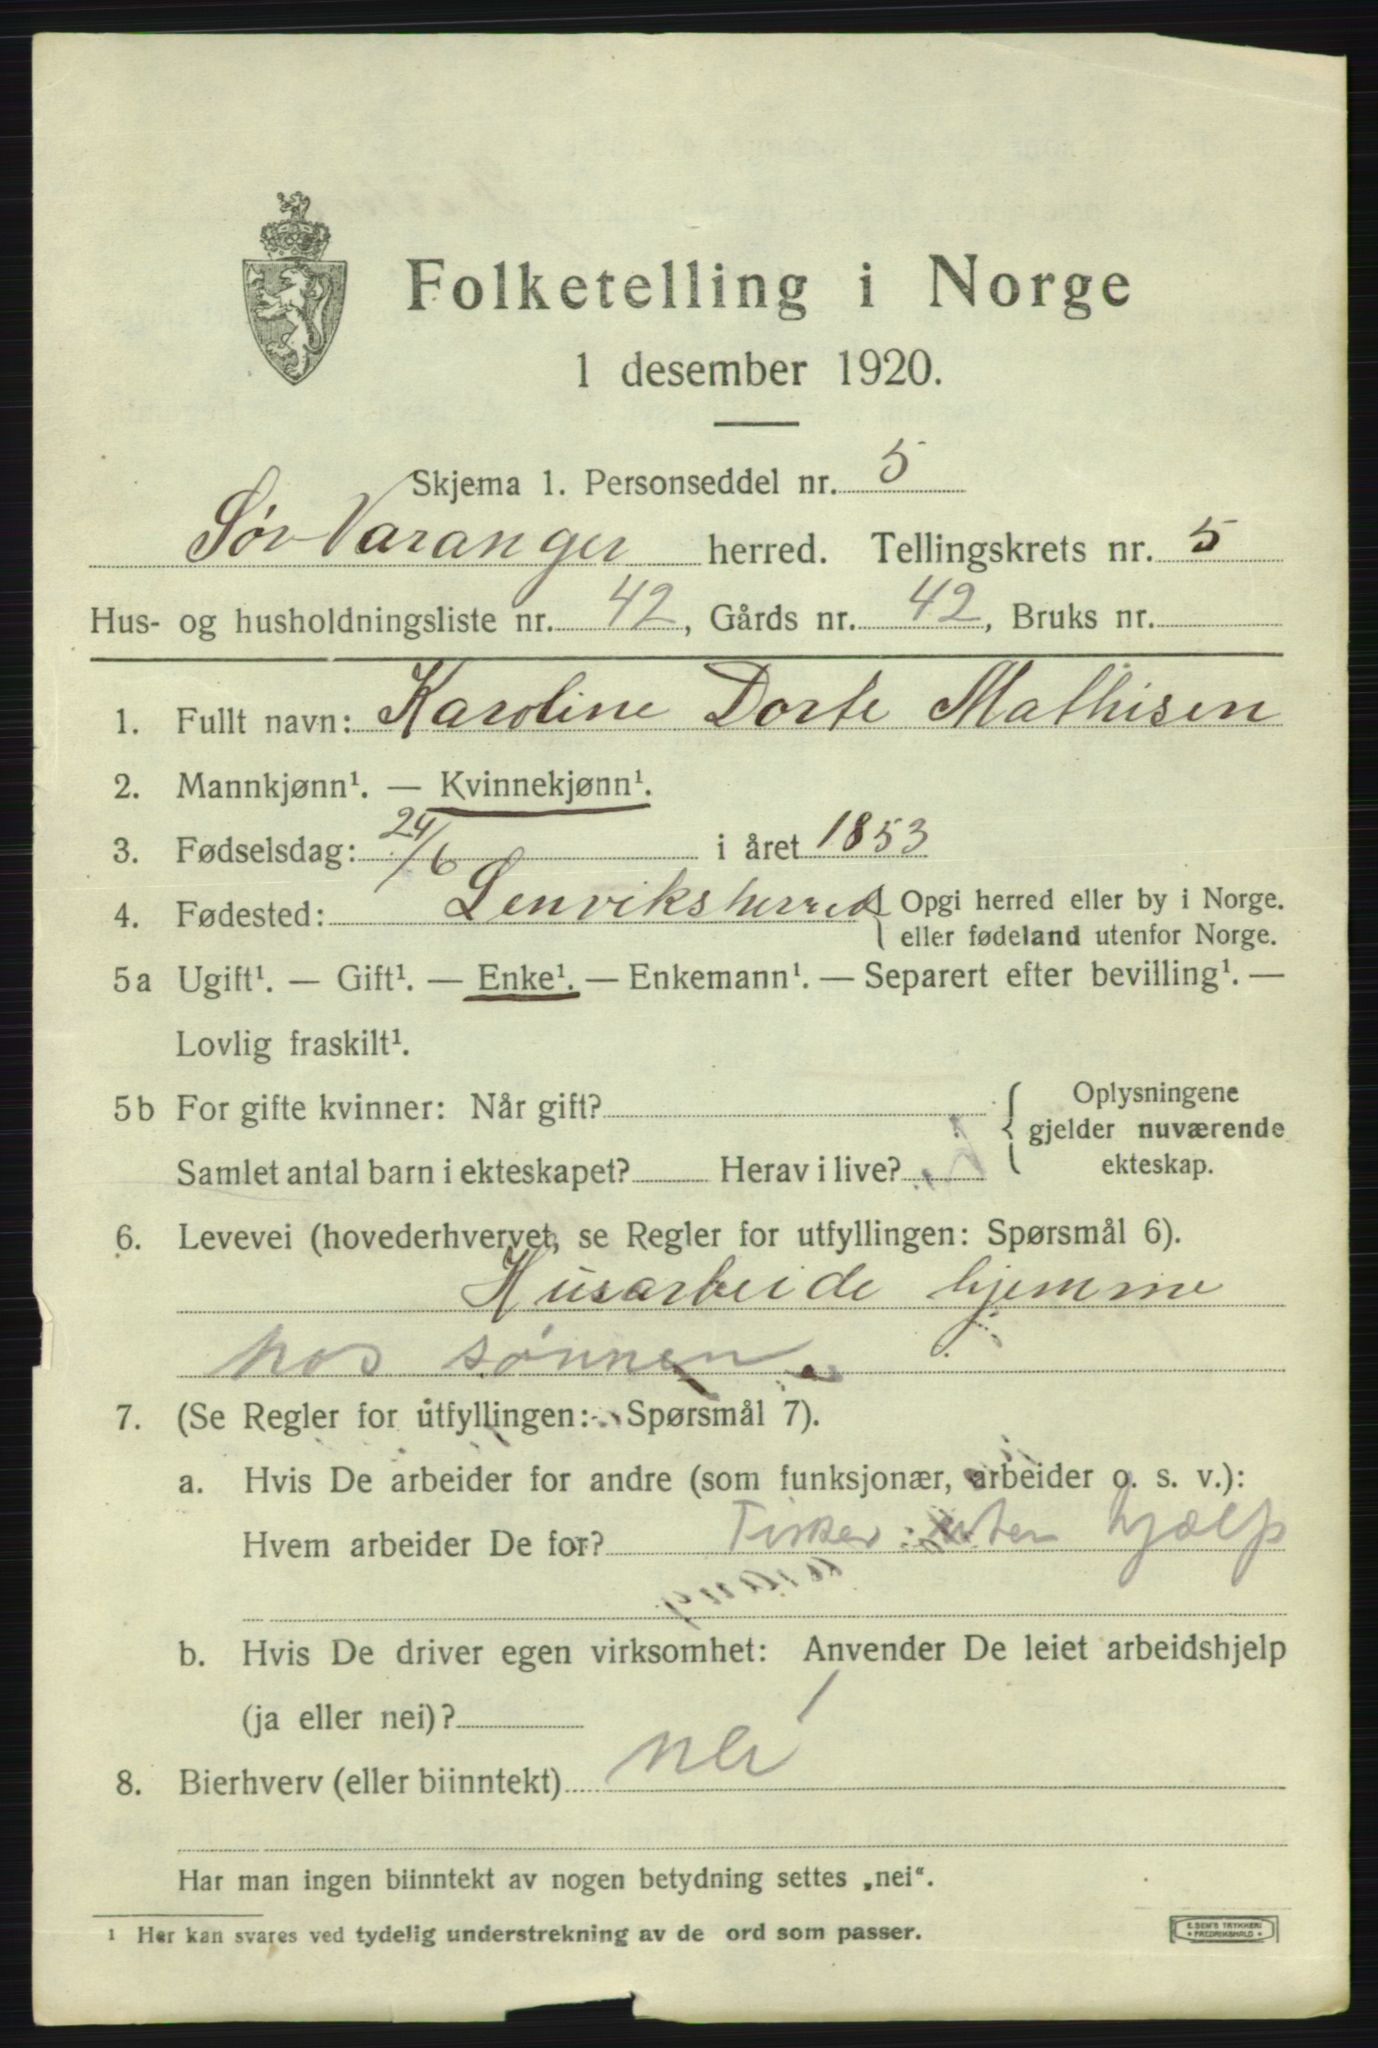 Folketelling i Norge
1 desember 1920.
Skjema 1. Personseddel nr. 5
Sør-Varanger herred. Tellingskrets nr. 5
Hus- og husholdningsliste nr. 42, Gårds nr. 42, Bruks nr.
1. Fullt navn: Karoline Dorte Mathisen
2. Mannkjønn¹. — Kvinnekjønn¹.
3. Fødselsdag: 24/6 i året 1853
4. Fødested: Lenviksherred { Opgi herred eller by i Norge.
eller fødeland utenfor Norge.
5a Ugift¹. — Gift¹. — Enke¹. — Enkemann¹. — Separert efter bevilling¹. —
Lovlig fraskilt¹.
5b For gifte kvinner: Når gift? { Oplysningene
gjelder nuværende
Samlet antal barn i ekteskapet? Herav i live? ekteskap.
6. Levevei (hovederhvervet, se Regler for utfyllingen: Spørsmål 6).
Husarbeide hjemme
hos sønnen
7. (Se Regler for utfyllingen: Spørsmål 7).
a. Hvis De arbeider for andre (som funksjonær, arbeider o. s. v.):
Hvem arbeider De for? Fisker uten hjælp
b. Hvis De driver egen virksomhet: Anvender De leiet arbeidshjelp
(ja eller nei)?
8. Bierhverv (eller biinntekt) nei
Har man ingen biinntekt av nogen betydning settes „nei“.
¹ Her kan svares ved tydelig understrekning av de ord som passer.
E. SEM'S TRYKKERI
• FREDRIKSHALD •